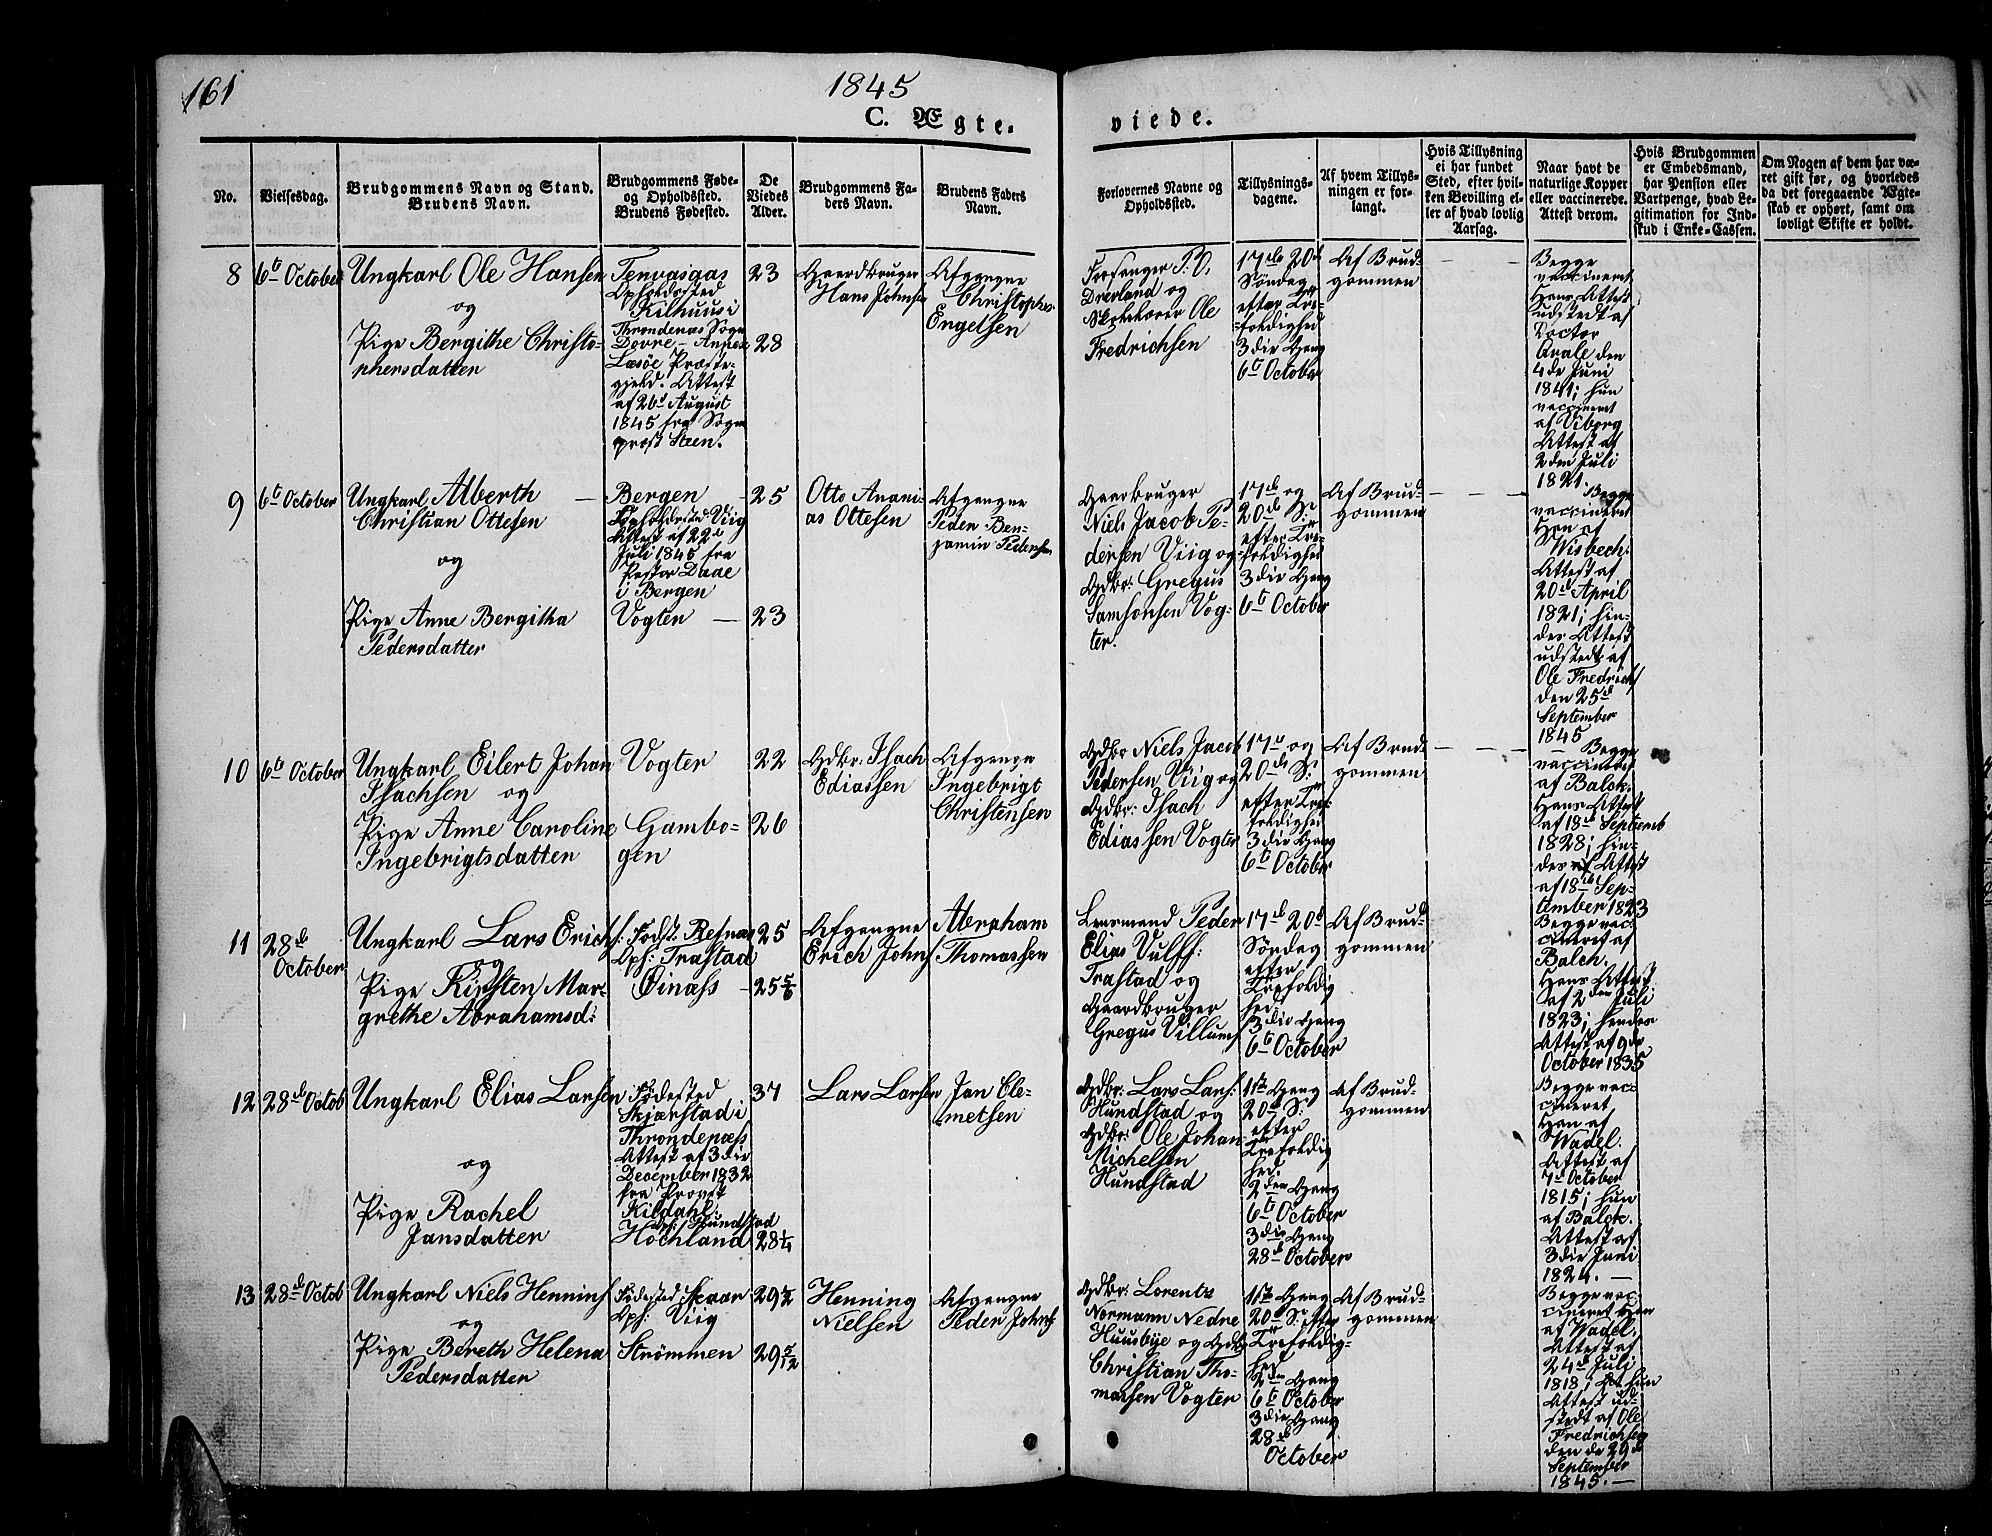 161
1845
C. Ægte-
viede.
No.
Vielsesdag.
Brudgommens Navn og Stand.
Brudens Navn.
Brudgommens Føde-
og Opholdssted.
Brudens Fødested.
De
Viedes
Alder.
Brudgommens Fa-
ders Navn.
Brudens Faders
Navn.
Forlovernes Navne og
Opholdssted.
Tillysnings-
dagene.
Af hvem Tillys-
ningen er for-
langt.
Hvis Tillysning
ei har fundet
Sted, efter hvil-
ken Bevilling el-
ler af hvad lovlig
Aarsag.
Naar havt de
naturlige Kopper
eller vaccinerede.
Attest derom.
Hvis Brudgommen
er Embedsmand,
har Pension eller
Vartpenge, hvad Le-
gitimation for Ind-
skud i Enke-Cassen.
Om Nogen af dem har væ-
ret gift før, og hvorledes
da det foregaaende Ægte-
skab er ophørt, samt om
lovligt Skifte er holdt.
8
6te October
Ungkarl Ole Hansen
og
Pige Bergithe Christo-
phersdatter
Tenvasgas
Opholdssted
Kilhuus i
Throndenæs Sogn
Dovre - Annex
Læsøe Præste-
gjeld. Attest
af 26d August
1845 fra Sogne
præst Steen.
23
28
Gaardbruger
Hans Johnsen
Afgangne
Christopher
Engelsen
Forsanger P. O.
Dreyland og
Skolelærer Ole
Fredrichsen
17de 20d
Søndag
efter Tre-
foldighed
3die Gang
6te October
Af Brud-
gommen
Begge
vaccineret
Hans Attest
udstedt af
Doctor
Qvale den
4de Juni
1841; hun
vaccineret
af Viborg
Attest af
2den Juli
1821.
9
6te October
Ungkarl Alberth
Christian Ottesen
og
Pige Anne Bergitha
Pedersdatter
Bergen
Opholdssted Viig
Attest af 22d
Juli 1845 fra
Pastor Daae
i Bergen
Vogter
25
23
Otto Anani-
as Ottesen
Afgangne
Peder Ben-
jamin Pedersen
Gaardbruger
Niels Jacob Pe-
dersen Viig og
Gdbr: Gregus
Samsonsen Vog-
ter.
17de og
20de S:
efter Tre-
foldighed
3die Gang
6te October
Af Brud-
gommen
Begge
vaccineret
Han af
Wisbech.
Attest af
20d April
1821; hin-
des Attest
udstedt af
Ole Fredrichs
den 25d
September
1845
10
6te October
Ungkarl Eilert Johan
Isachsen og
Pige Anne Caroline
Ingebrigtsdatter
Vogter
Gambo-
gen
22
26
Gdbr: Isach
Ediassen
Afgangne
Ingebrigt
Christensen
Gdbr Niels Jacob
Pedersen Viig og
Gdbr: Isach
Ediassen Vogter
17d og
20de S:
efter Tre-
foldighed
3die Gang
6te October
Af Brud-
gommen
Begge
vaccineret
af Balck.
Hans Attest
af 18d Septemb
1828; hin-
des af Attest
af 18de Sep-
tember 1823
11
28de
October
Ungkarl Lars Erichs:
og
Pige Kirsten Mar-
grethe Abrahamsd:
Fødst: Refnæs
Oph: Trastad
Øinæss
25
25 5/6
Afgangne
Erich Johns
Abraham
Thomassen
Lensmand Peder
Elias Vulff:
Trastad og
Gaardbruger
Gregus Villums
17de 20d
Søndag
efter
Trefoldig
hed.
3die Gang
6te October
Af Brud-
gommen
Begge vac-
cineret af
Balch.
Hans Attest
af 2den Juli
1823; hendes
Attest af 9de
October 1835
12
28de Octob
Ungkarl Elias Larsen
og
Pige Rachel
Jansdatter
Fødested
Skjærstad i
Throndenæss
Attest af 3die
December 1832
fra Provst
Kildahl.
Oph: Hundstad
Hochland
37
28 1/4
Lars Larsen
Jan Cle-
metsen
Gdbr: Lars Lars:
Hundstad og
Gdbr: Ole Johan
Michelsen
Hundstad
1ste Gang
20de S:
efter
Trefoldig
hed.
2den Gang
6te October
3die Gang
28de October
Af Brud-
gommen
Begge vac-
cineret
Han af
Wadel.
Attest af
7de October
1815; hun
af Balck.
Attest af
3die Juni
1824.
13
28de Octob
Ungkarl Niels Hennings
og
Pige Bereth Helena
Pedersdatter
Fødested Skaar
Oph: Viig
Strømmen
29 1/2
29 5/12
Henning
Nielsen
Afgangne
Peder Johns
Gdbr: Lorents
Normann Nedre
Huusbye og Gdbr
Christian Tho-
massen Vogter
1ste Gang
20de S: efter
Trefoldig-
hed
2den Gang
6te October
3die Gang
28de
October
Af Brud-
gommen
Begge vac-
cineret Han
af Wadel.
Attest af
24d Juli
1818; hun
Attest ud-
stedt af Ole
Fredrichsen
den de 29d
September
1845.